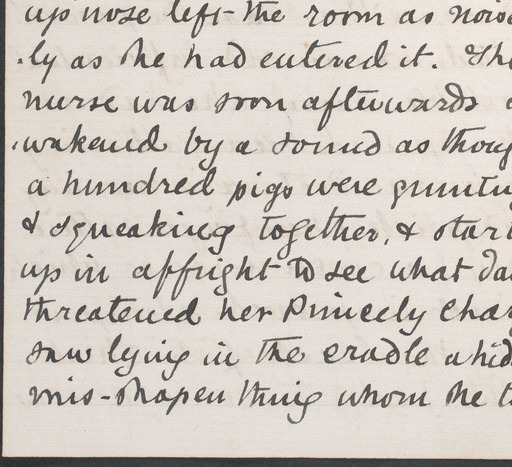 up nose left the room as noise
ly as he had entered it. The
nurse was soon afterwards a
wakened by a sound as thoug
a hundred pigs were gruntin
& squeaking together, & start
up in affright to see what da
threatened her Princely char
saw lying in the cradle a hid
mis-shapen thing whom she t